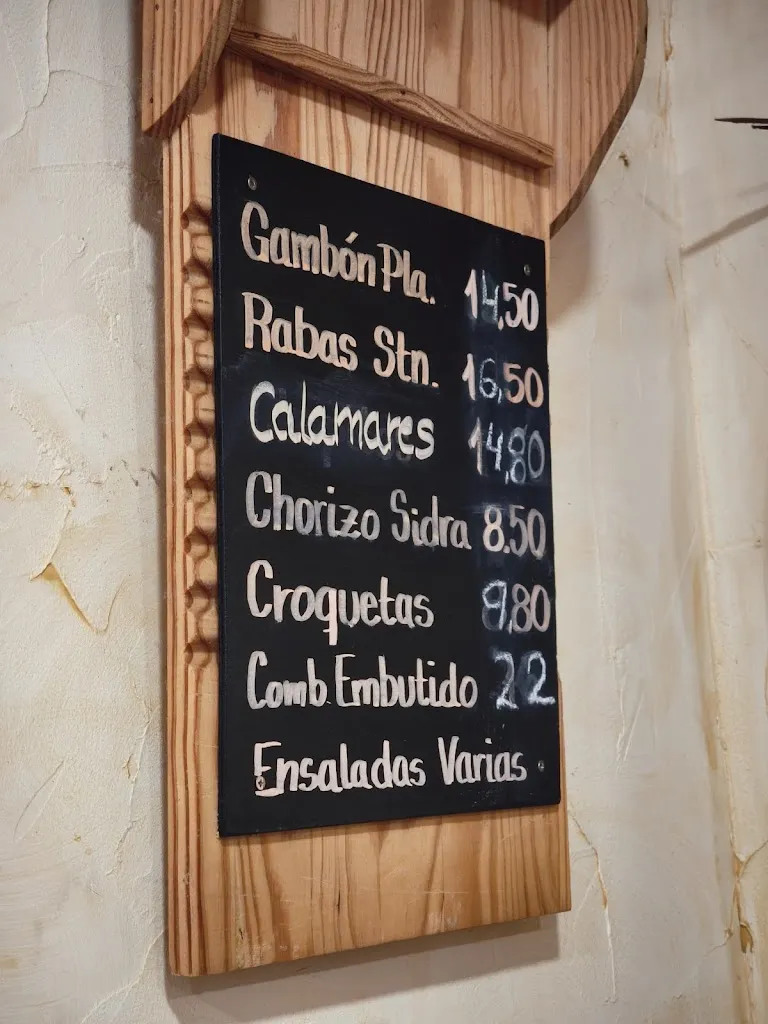 Gambón Pla. 14,50
Rabas Stn. 16,50
Calamares 14,80
Chorizo Sidra 8.50
Croquetas 9,80
Comb. Embutido 22
Ensaladas Varias